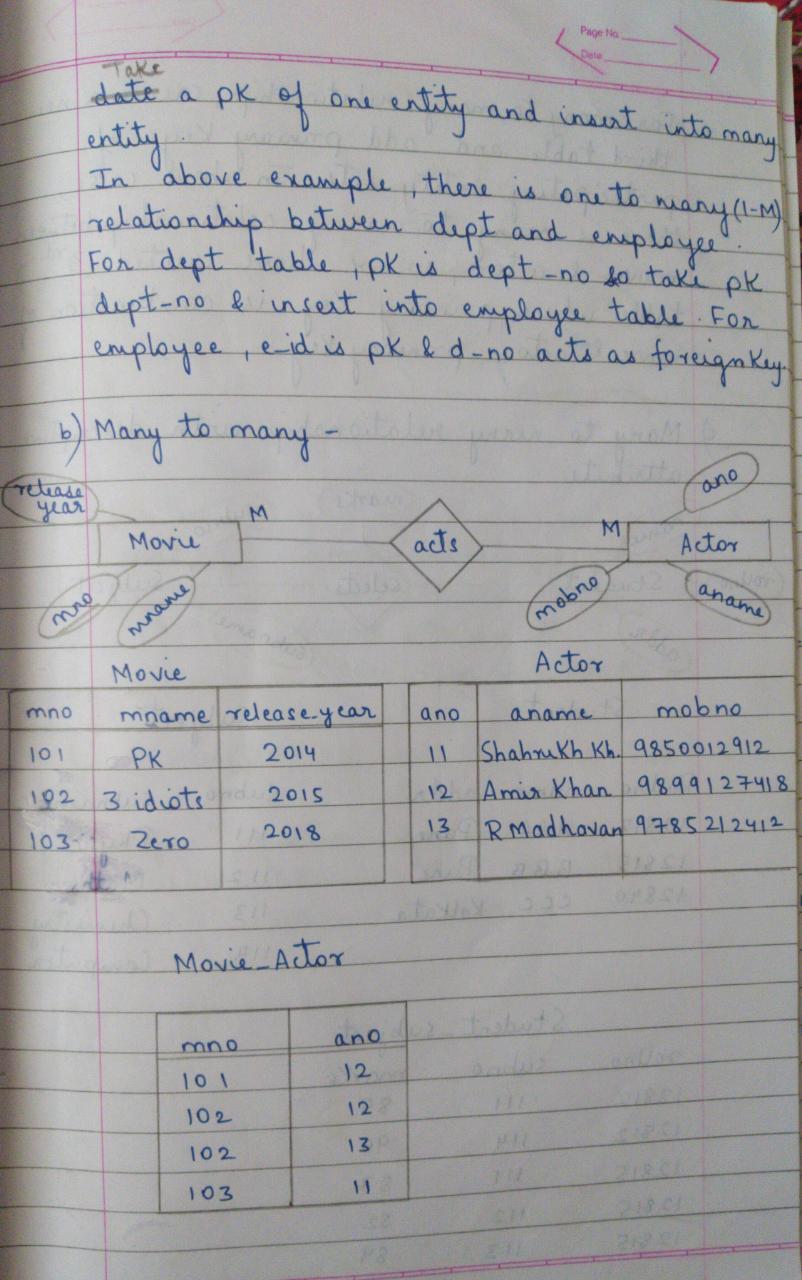 Page No.
Date
Take
date a pk of one entity and insert into many
entity.
In above example, there is one to many (1-M)
relationship between dept and employee.
For dept table, pk is dept-no so take pk
dept-no & insert into employee table. For
employee, e-id is pk & d-no acts as foreign key.
b) Many to many -
release year
ano
M
Movie
acts
M
Actor
mno
mname
mobno
aname
Movie
Actor
mno mname release-year ano aname mobno
101 PK 2014 11 Shahrukh Kh. 9850012912
102 3 idiots 2015 12 Amir Khan 9899127418
103 Zero 2018 13 R Madhavan 9785212412
Movie_Actor
mno ano
101 12
102 12
102 13
103 11